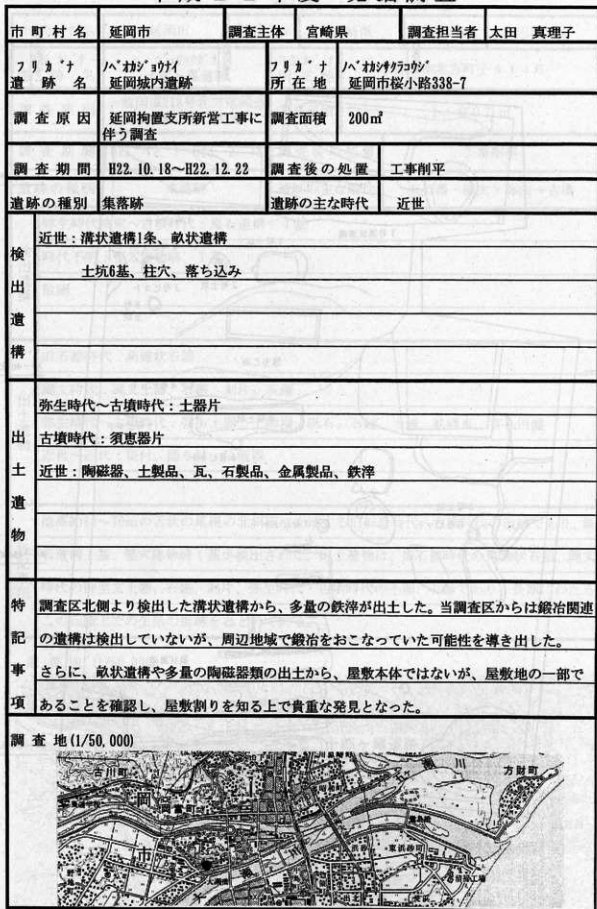 市町村名 延岡市 調査主体 宮崎県 調査担当者 太田 真理子
フリガナ ﾉﾍﾞｵｶｼﾞｮｳﾅｲ フリガナ ﾉﾍﾞｵｶｼｻｸﾗｺｳｼﾞ
遺跡名 延岡城内遺跡 所在地 延岡市桜小路338-7
調査原因 延岡拘置支所新営工事に 調査面積 200㎡
伴う調査
調査期間 H22.10.18～H22.12.22 調査後の処置 工事削平
遺跡の種別 集落跡 遺跡の主な時代 近世
検出遺構
近世：溝状遺構1条、畝状遺構
土坑6基、柱穴、落ち込み
出土遺物
弥生時代～古墳時代：土器片
古墳時代：須恵器片
近世：陶磁器、土製品、瓦、石製品、金属製品、鉄滓
特記事項
調査区北側より検出した溝状遺構から、多量の鉄滓が出土した。当調査区からは鍛冶関連
の遺構は検出していないが、周辺地域で鍛冶をおこなっていた可能性を導き出した。
さらに、畝状遺構や多量の陶磁器類の出土から、屋敷本体ではないが、屋敷地の一部で
あることを確認し、屋敷割りを知る上で貴重な発見となった。
調査地(1/50,000)
古川町
方財町
岡富町
東浜砂町
市